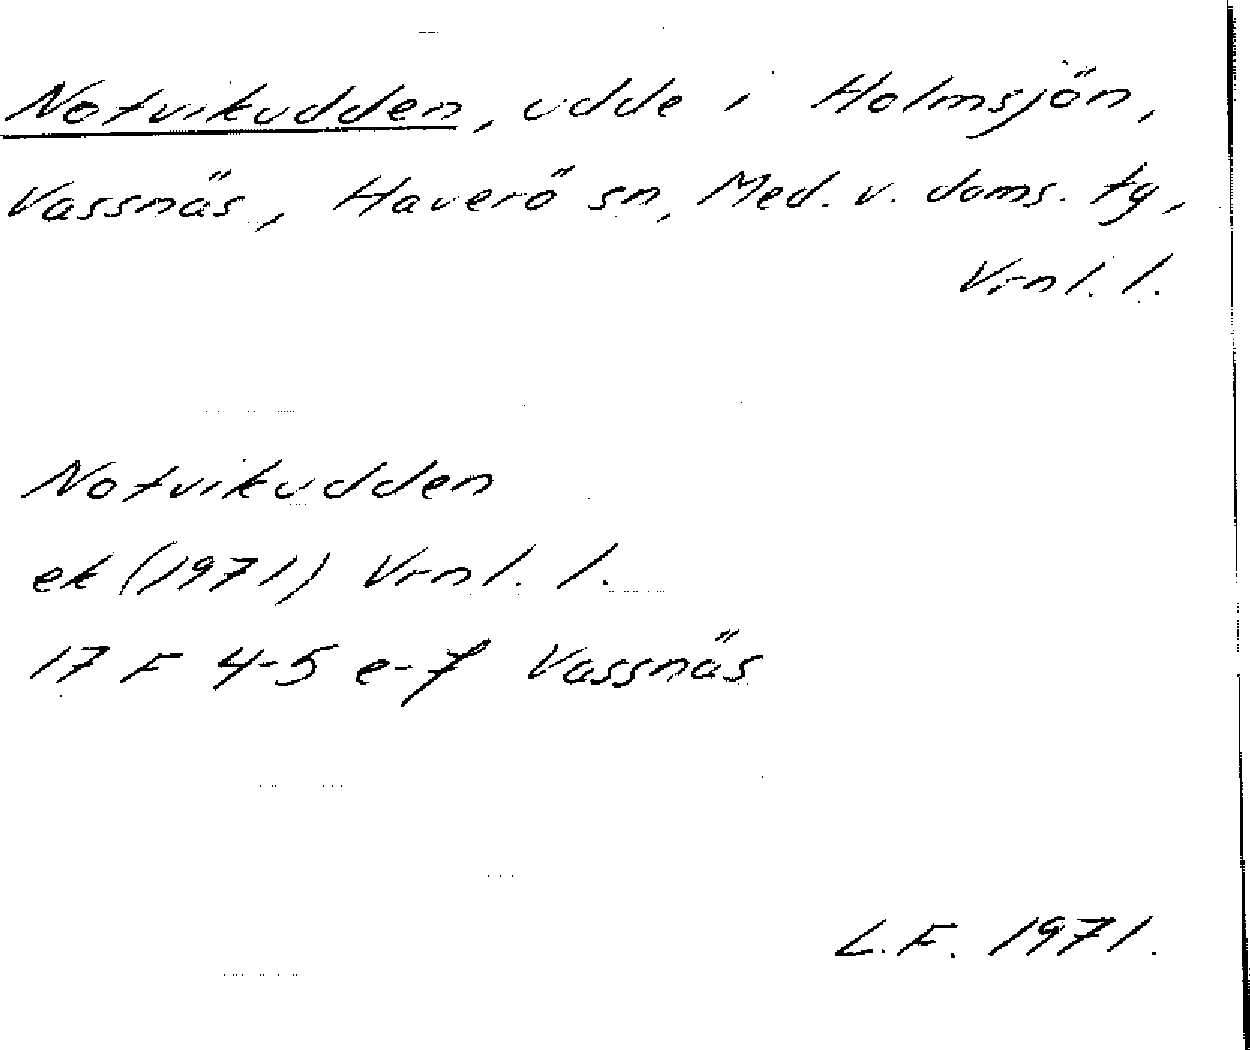 Notvikudden, udde i Holmsjön,
Vassnäs, Haverö sn, Med. v. doms. tg,
Vrnl. l.
Notvikudden
ek (1971) Vrnl. l.
17 F 4-5 e-f Vassnäs
L.F. 1971.